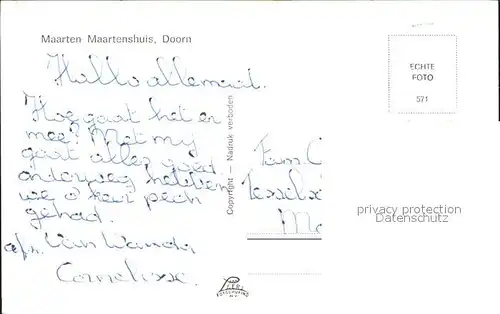 Maarten Maartenshuis, Doorn
Hallo allemaal.
Hoe gaat het er
mee? Met my
gaat alles goed
onderweg hebben
we 0 keer pech
gehad.
afz. Van Wanda
Cornelisse.
Copyright — Nadruk verboden
ECHTE
FOTO
571
Fam. C
Tesselsc
privacy protection
Datenschutz